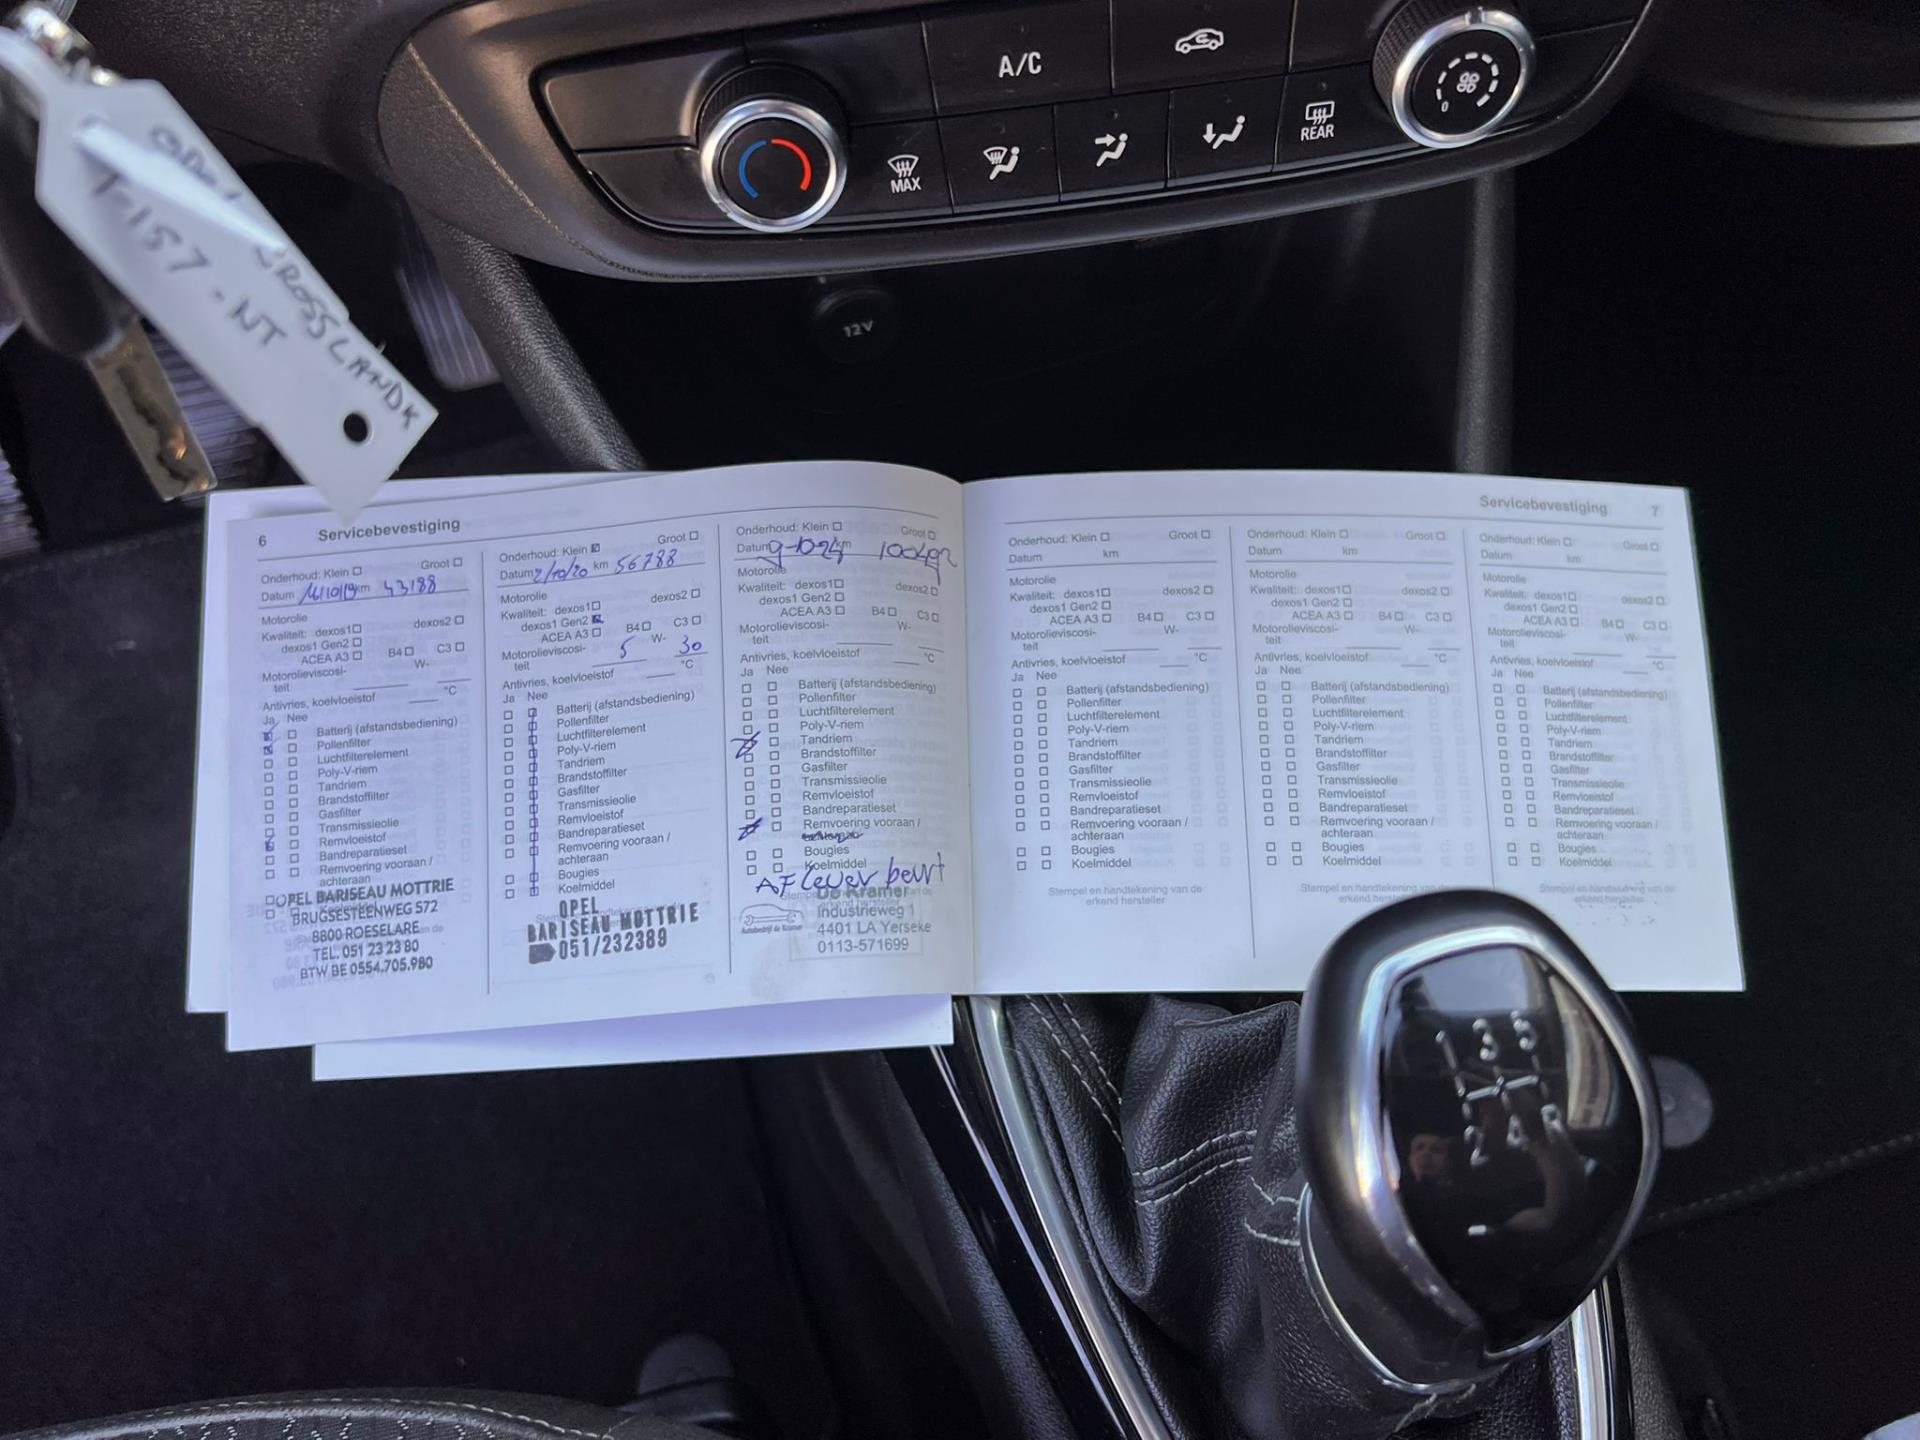 A/C
MAX
REAR
0
12V
CROSSLANDX
T-157-NT
6 Servicebevestiging
Onderhoud: Klein Groot
Datum 16/10/19 km 43188
Motorolie
Kwaliteit: dexos1 dexos2
dexos1 Gen2
ACEA A3 B4 C3
Motorolieviscosi- W-
teit
Antivries, koelvloeistof °C
Ja Nee
Batterij (afstandsbediening)
Pollenfilter
Luchtfilterelement
Poly-V-riem
Tandriem
Brandstoffilter
Gasfilter
Transmissieolie
Remvloeistof
Bandreparatieset
Remvoering vooraan /
achteraan
OPEL BARISEAU MOTTRIE
BRUGSESTEENWEG 572
8800 ROESELARE
TEL. 051 23 23 80
BTW BE 0554.705.980
Onderhoud: Klein Groot
Datum 2/10/20 km 56788
Motorolie
Kwaliteit: dexos1 dexos2
dexos1 Gen2
ACEA A3 B4 C3
Motorolieviscosi- 5 W- 30
teit
Antivries, koelvloeistof °C
Ja Nee
Batterij (afstandsbediening)
Pollenfilter
Luchtfilterelement
Poly-V-riem
Tandriem
Brandstoffilter
Gasfilter
Transmissieolie
Remvloeistof
Bandreparatieset
Remvoering vooraan /
achteraan
Bougies
Koelmiddel
OPEL
BARISEAU MOTTRIE
051/232389
Onderhoud: Klein Groot
Datum 9-10-24 km
Motorolie
Kwaliteit: dexos1 dexos2
dexos1 Gen2
ACEA A3 B4 C3
Motorolieviscosi- W-
teit
Antivries, koelvloeistof °C
Ja Nee
Batterij (afstandsbediening)
Pollenfilter
Luchtfilterelement
Poly-V-riem
Tandriem
Brandstoffilter
Gasfilter
Transmissieolie
Remvloeistof
Bandreparatieset
Remvoering vooraan /
Bougies
Koelmiddel
AFlever beurt
De Kramer
Industrieweg 1
4401 LA Yerseke
0113-571699
Autobedrijf de Kramer
Servicebevestiging 7
Onderhoud: Klein Groot
Datum km
Motorolie
Kwaliteit: dexos1 dexos2
dexos1 Gen2
ACEA A3 B4 C3
Motorolieviscosi- W-
teit
Antivries, koelvloeistof °C
Ja Nee
Batterij (afstandsbediening)
Pollenfilter
Luchtfilterelement
Poly-V-riem
Tandriem
Brandstoffilter
Gasfilter
Transmissieolie
Remvloeistof
Bandreparatieset
Remvoering vooraan /
achteraan
Bougies
Koelmiddel
Stempel en handtekening van de
erkend hersteller
Onderhoud: Klein Groot
Datum km
Motorolie
Kwaliteit: dexos1 dexos2
dexos1 Gen2
ACEA A3 B4 C3
Motorolieviscosi- W-
teit
Antivries, koelvloeistof °C
Ja Nee
Batterij (afstandsbediening)
Pollenfilter
Luchtfilterelement
Poly-V-riem
Tandriem
Brandstoffilter
Gasfilter
Transmissieolie
Remvloeistof
Bandreparatieset
Remvoering vooraan /
achteraan
Bougies
Koelmiddel
Stempel en handtekening van de
erkend hersteller
Onderhoud: Klein Groot
Datum km
Motorolie
Kwaliteit: dexos1 dexos2
dexos1 Gen2
ACEA A3 B4 C3
Motorolieviscosi- W-
teit
Antivries, koelvloeistof °C
Ja Nee
Batterij (afstandsbediening)
Pollenfilter
Luchtfilterelement
Poly-V-riem
Tandriem
Brandstoffilter
Gasfilter
Transmissieolie
Remvloeistof
Bandreparatieset
Remvoering vooraan /
achteraan
Bougies
Koelmiddel
Stempel en handtekening van de
erkend hersteller
1 3 5
2 4 R